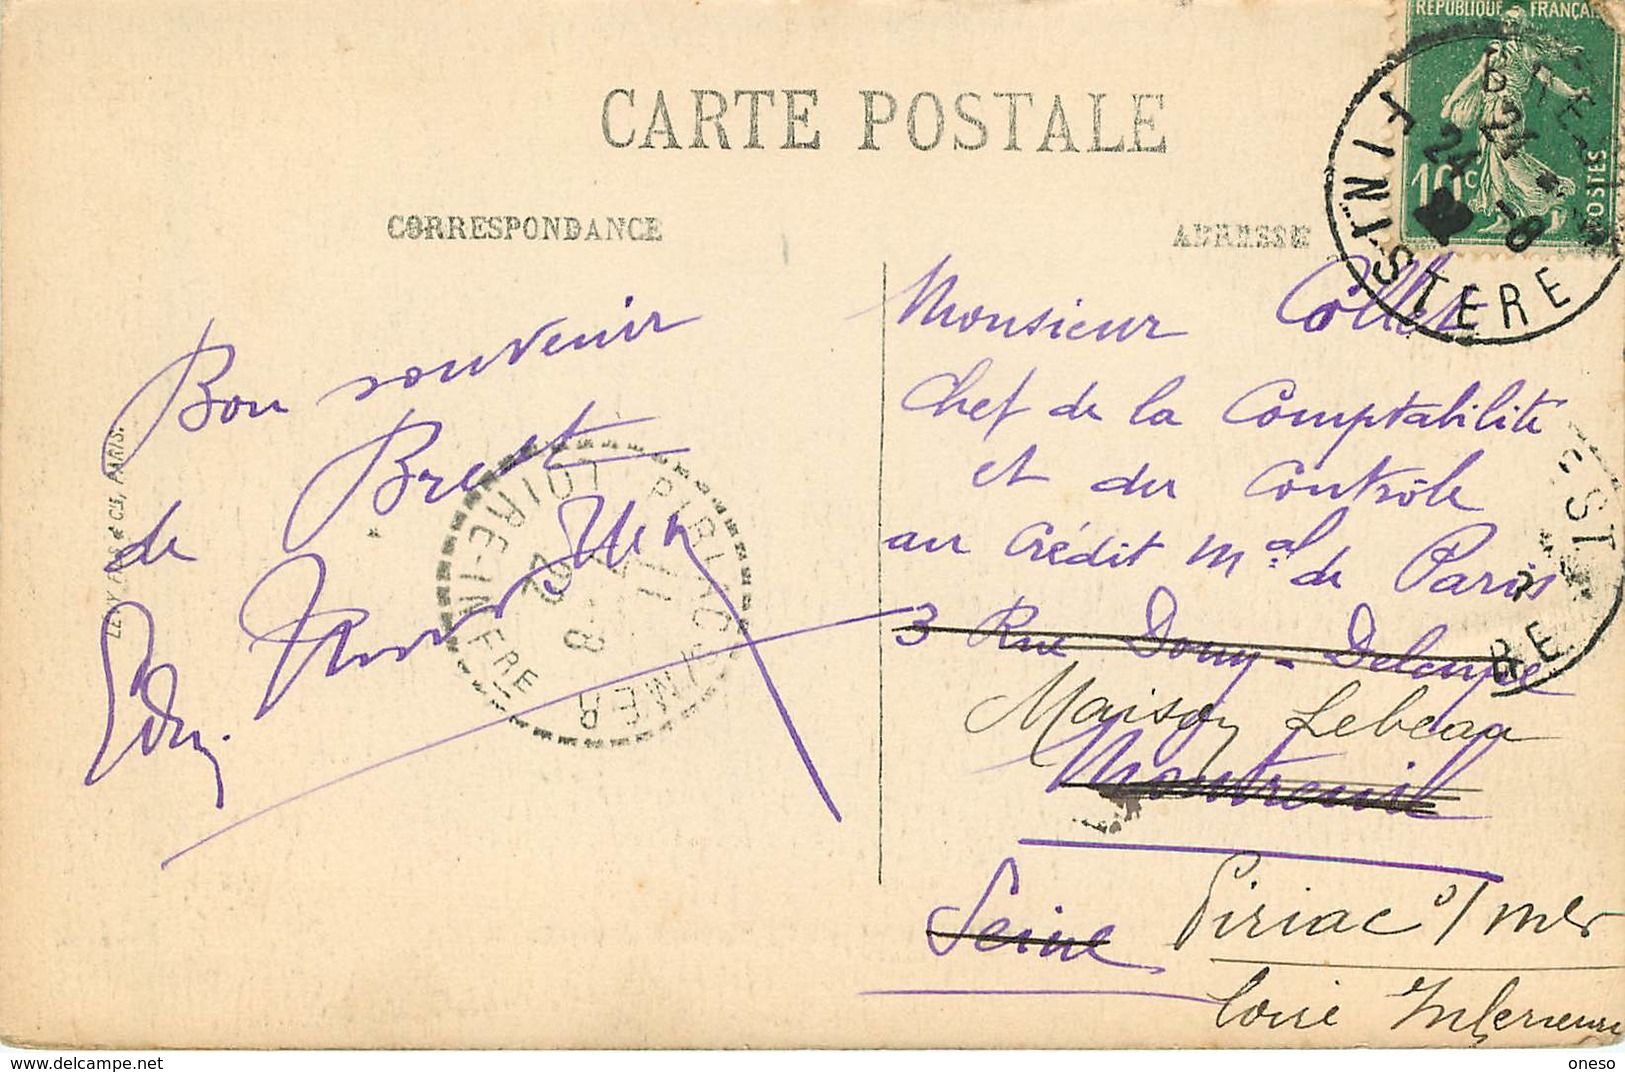 CARTE POSTALE
CORRESPONDANCE
ADRESSE
RÉPUBLIQUE FRANÇAISE
10c
POSTES
BREST
24
24 -8
FINISTERE
Bon souvenir
de Brest
Edm.
LEVY FILS & Cie, PARIS.
PIRIAC S/MER
LOIRE-INFRE
11
-8
22
Monsieur Collet
Chef de la Comptabilité
et du Contrôle
au Crédit Mal de Paris
3 Rue Douy-Delcupe
Maison Lebeau
Montreuil
Seine
Piriac s/ mer
Loire Inférieure
EST
RE
delcampe.net
oneso